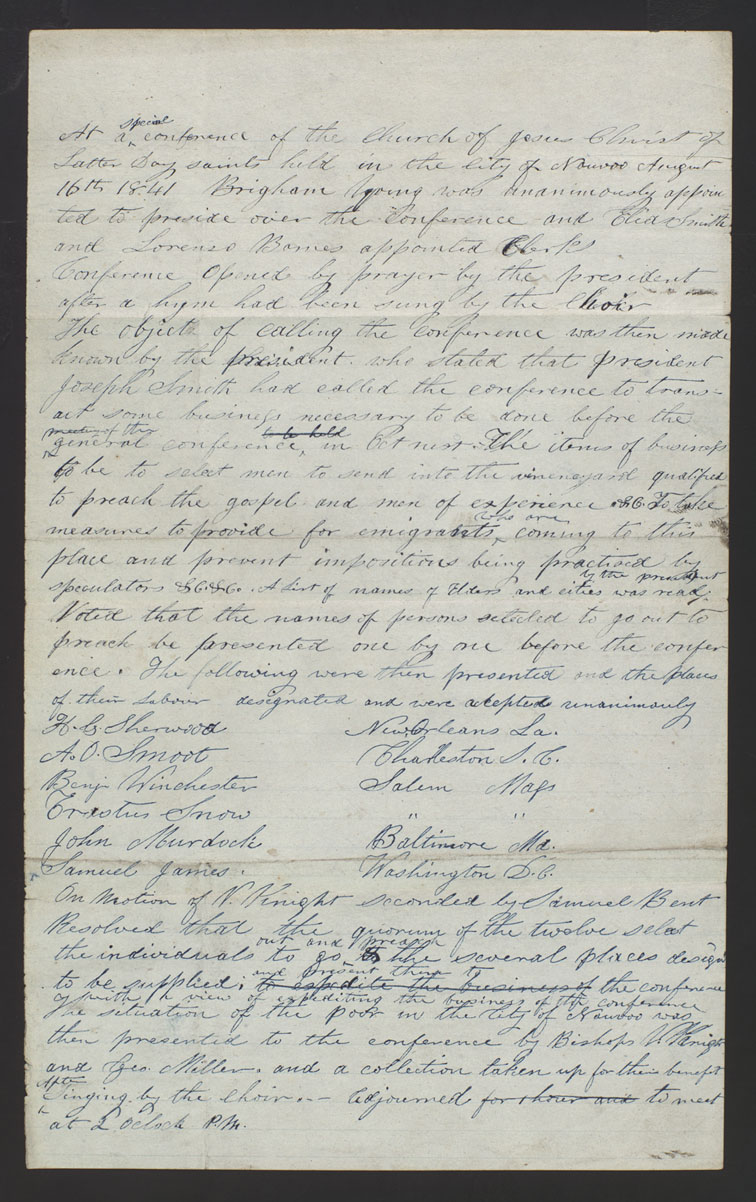 special
At a conference of the Church of Jesus Christ of
Latter Day saints held in the City of Nauvoo August
16th 1841 Brigham Young was unanimously appoin
ted to preside over the Conference and Elias Smith
and Lorenzo Barnes appointed Clerks
Conference Opened by prayer by the president
after a hymn had been sung by the Choir
The objects of calling the conference was then made
known by the president. who stated that president
Joseph Smith had called the conference to trans=
act some business necessary to be done before the
meeting of the to be held
general conference, in Oct next. The items of business
to be to select men to send into the vineyard qualified
to preach the gospel and men of experience &C. To take
who are
measures to provide for emigrants, coming to this
place and prevent impositions being practised by
by the president
speculators &C.&C. A List of names of Elders and cities was read,
Voted that the names of persons selected to go out to
preach be presented one by one before the confer
ence. The following were then presented and the places
of their Labour designated and were acepted unanimouly
H. G. Sherwood New Orleans La.
A. O. Smoot Charleston S. C.
Benj. Winchester Salem Mass
Erastus Snow " "
John Murdock Baltimore Md.
Samuel James. Washington D.C.
On Motion of V. Knight seconded by Samuel Bent
Resolved that the quorum of the twelve select
out and preach
the individuals to go to the several places design
and present them to
to be supplied; to expedite the business of the conference
with a view of expediting the business of the conference
The situation of the Poor in the City of Nauvoo was
then presented to the conference by Bishops V. Knight
and Geo. Miller. and a collection taken up for their benefit
After
Singing by the choir. — Adjourned for 1 hour and to meet
at 2 Oclock P.M.